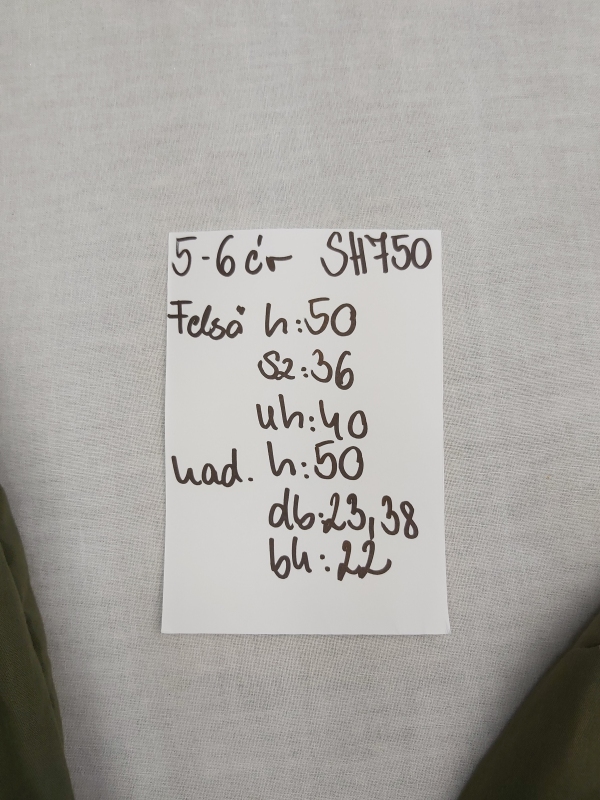 5-6 év SH750
Felső h:50
sz:36
uh:40
nad. h:50
db:23,38
bh:22